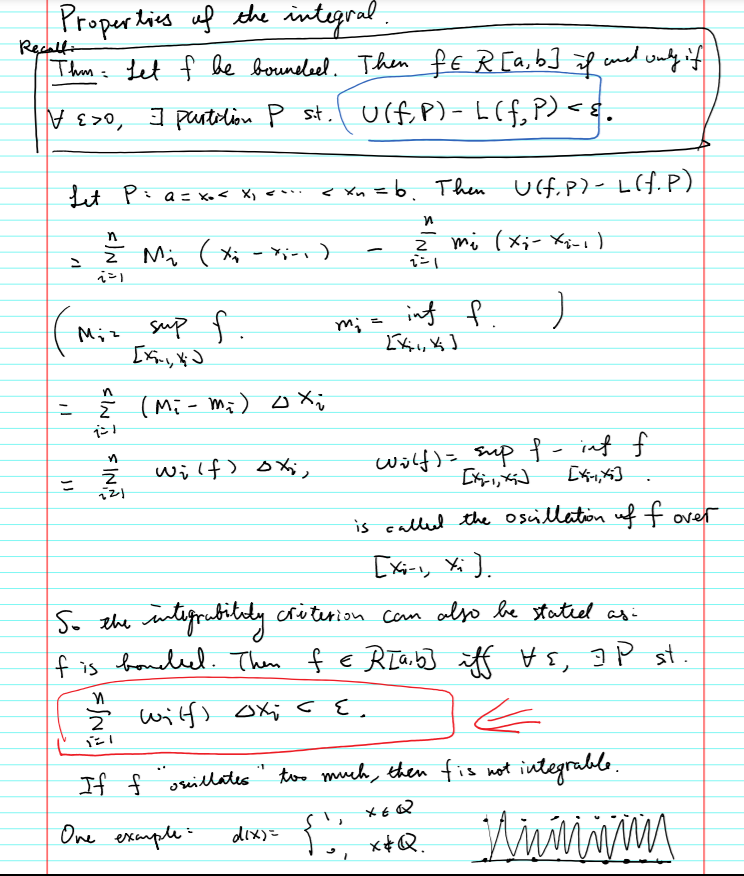 Properties of the integral.
Recall:
Thm: Let f be bounded. Then f ∈ R[a,b] if and only if
∀ ε>0, ∃ partition P st. U(f,P) - L(f,P) < ε.
Let P: a = x₀ < x₁ < ... < xₙ = b. Then U(f,P) - L(f,P)
= Σ_{i=1}^{n} Mᵢ (xᵢ - xᵢ₋₁) - Σ_{i=1}^{n} mᵢ (xᵢ - xᵢ₋₁)
( Mᵢ = sup_{[xᵢ₋₁, xᵢ]} f. mᵢ = inf_{[xᵢ₋₁, xᵢ]} f. )
= Σ_{i=1}^{n} (Mᵢ - mᵢ) Δxᵢ
= Σ_{i=1}^{n} wᵢ(f) Δxᵢ, wᵢ(f) = sup_{[xᵢ₋₁, xᵢ]} f - inf_{[xᵢ₋₁, xᵢ]} f.
is called the oscillation of f over
[xᵢ₋₁, xᵢ].
So the integrability criterion can also be stated as:
f is bounded. Then f ∈ R[a,b] iff ∀ ε, ∃ P st.
Σ_{i=1}^{n} wᵢ(f) Δxᵢ < ε.
If f "oscillates" too much, then f is not integrable.
One example: d(x) = { 1, x ∈ Q
0, x ∉ Q.